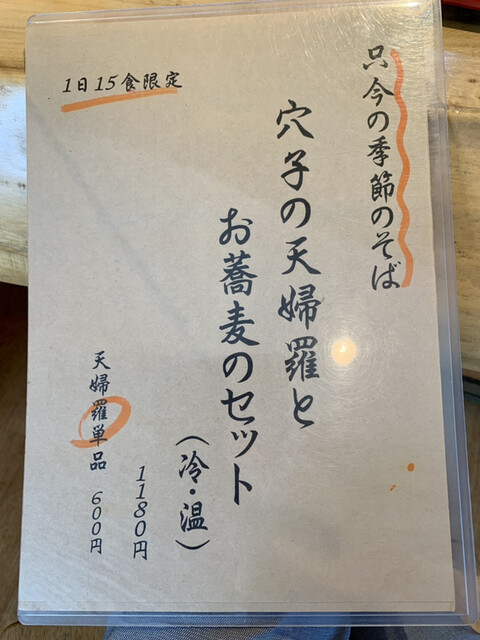 只今の季節のそば
穴子の天婦羅と
お蕎麦のセット
(冷・温)
1180円
天婦羅単品 600円
1日15食限定